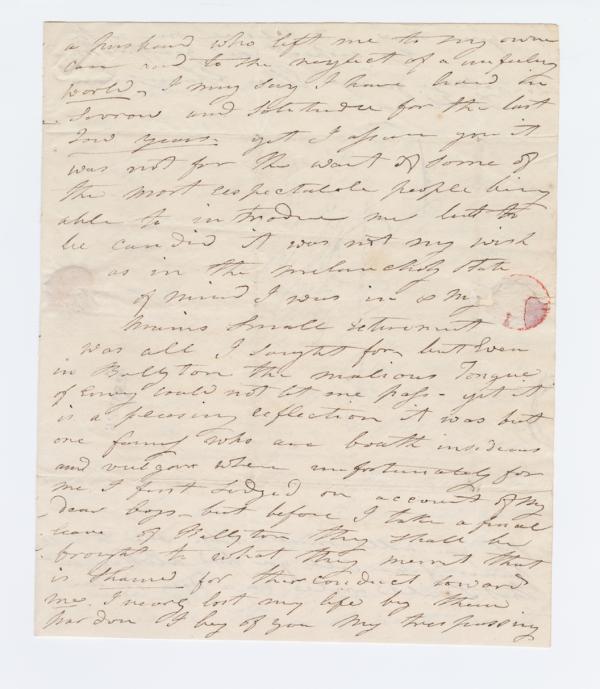 a husband who left me to my owne
care and to the neglect of a unfeeling
world, I may say I have lived in
Sorrow and Solitude for the last
Tow years. yet I assure you it
was not for the want of some of
the most respectable people being
able to introduce me but to
be candid it was not my wish
as in the melancholy state
of mind I was in & My
means Small retirement
was all I sought for, but Even
in Ballyton the malious Tongue
of Envy could not let me pass - yet it
is a pleasing reflection it was but
one family who are boath insideous
and vulgar where unfortunately for
me I first Lodged on account of My
dear boys - but before I take a final
leave of Ballyton they shall be
brought to what they merrit that
is Shame for ther conduct toward
me. I nearly lost my life by them
pardon I beg of you My trespassing